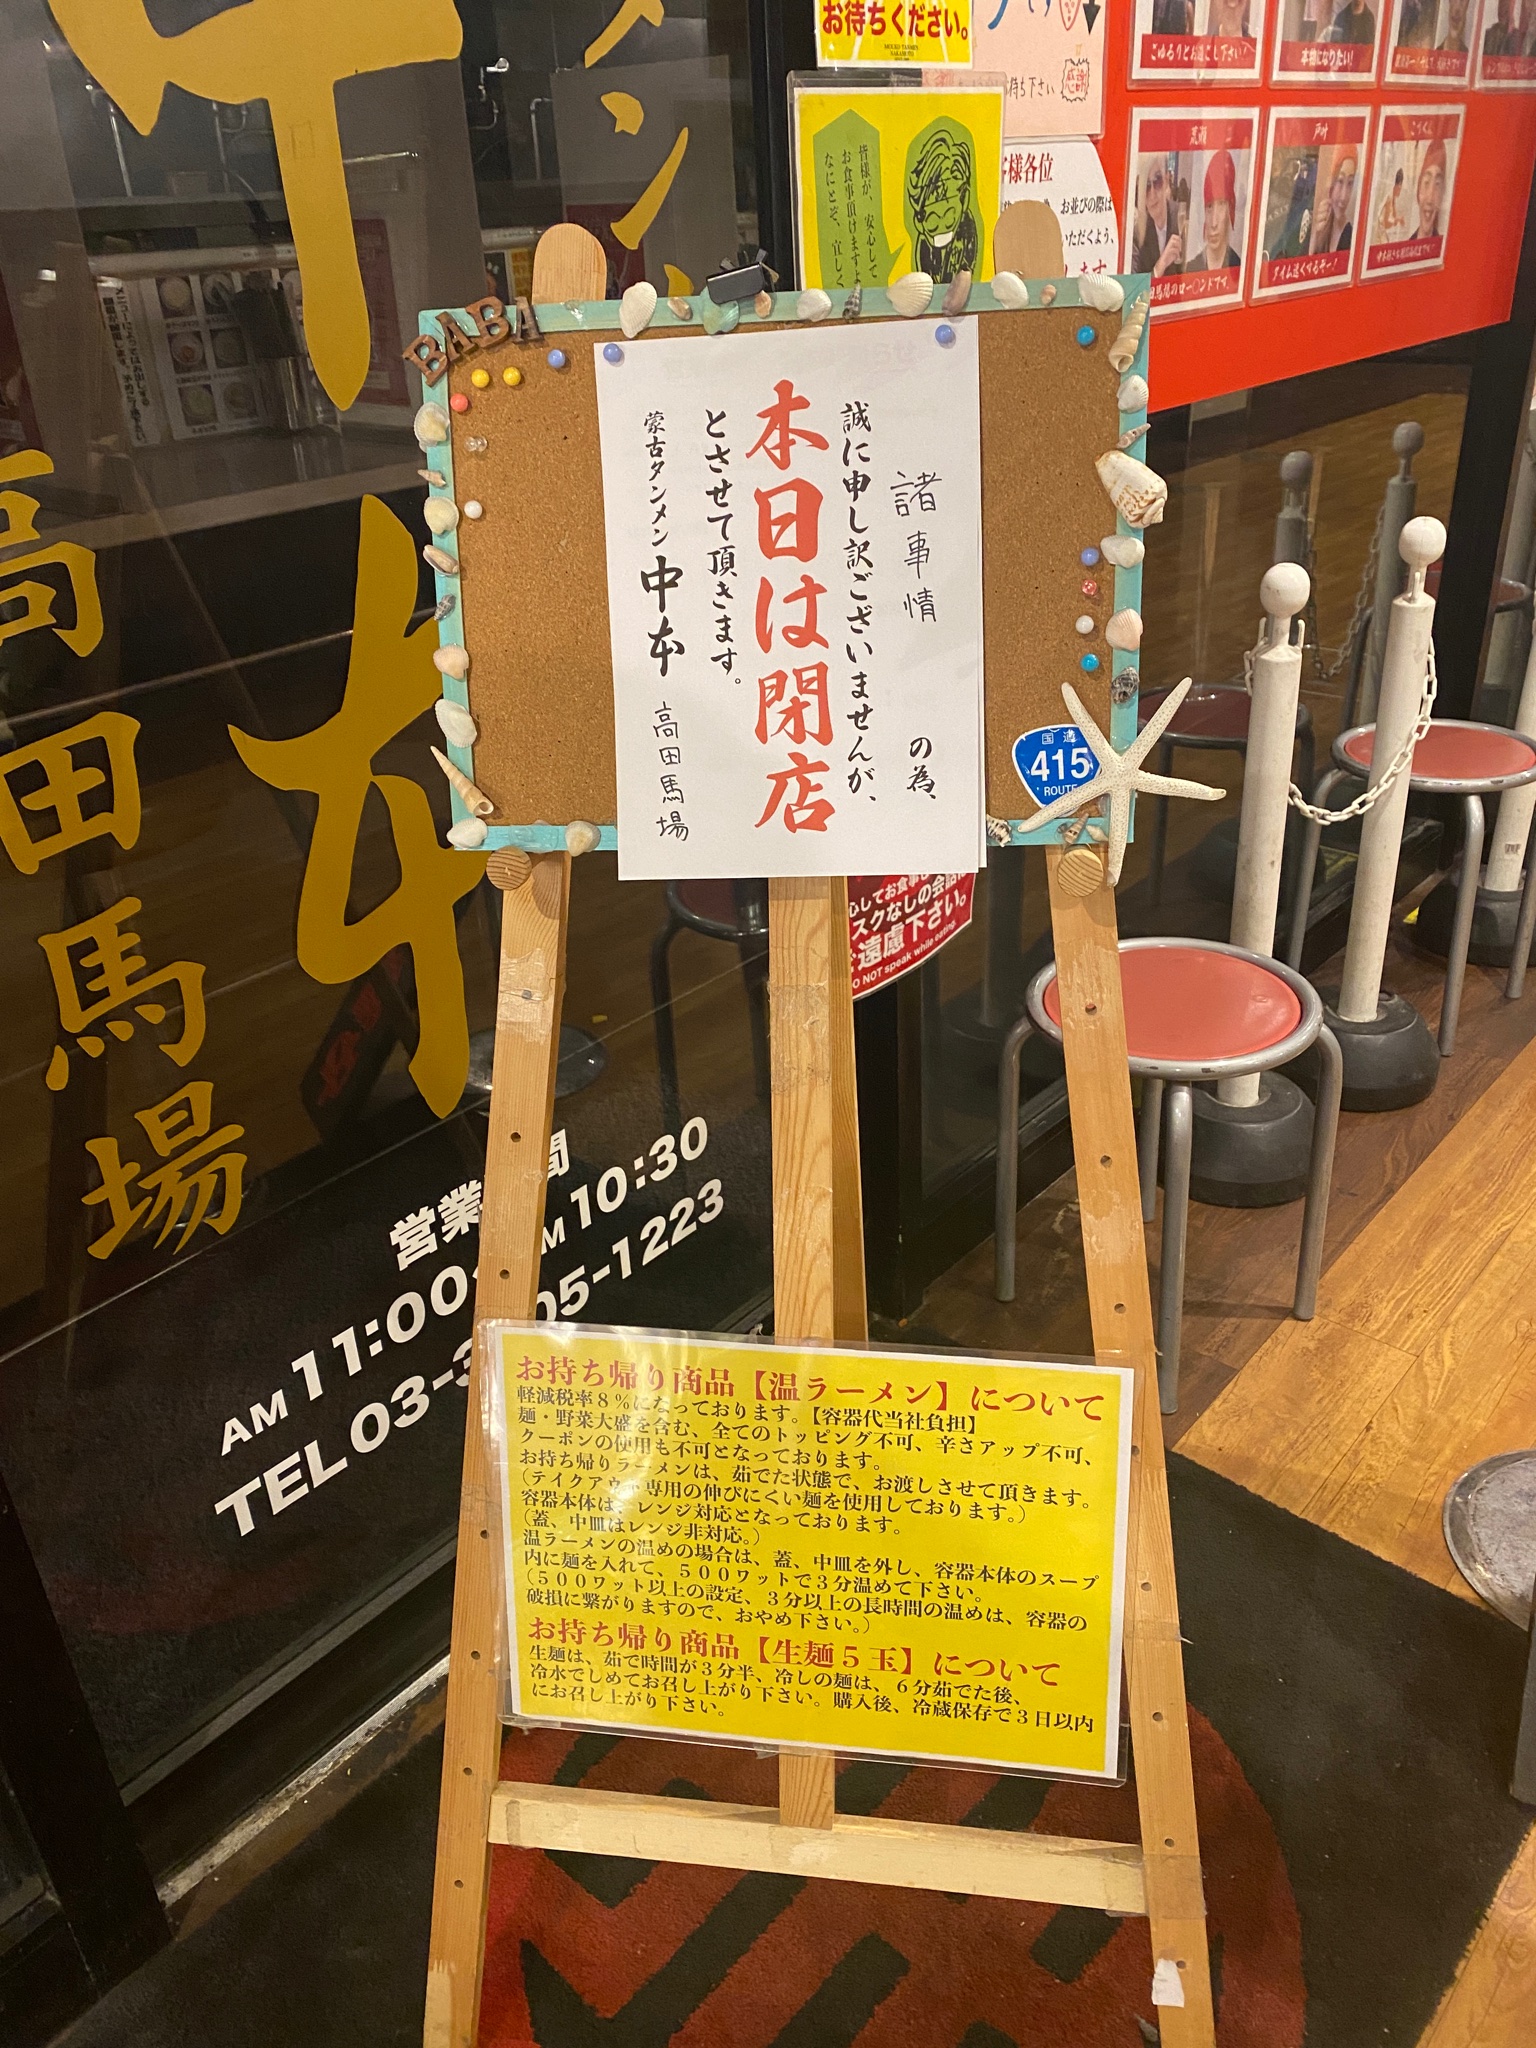 お待ちください。
MOUKO TANMEN
NAKAMOTO
待ち下さい
感謝
ごゆるりとお過し下さい
本物になりたい!
皆様が、安心して
お食事頂けますよ
なにとぞ、宜しく
様各位
お並びの際は
いただくよう、
します
荒瀬
戸叶
タイム速くするぞー!
BABA
諸事情
の為、
誠に申し訳ございませんが、
本日は閉店
とさせて頂きます。
蒙古タンメン 中本 高田馬場
国道
415
ROUTE
心してお食事し
スクなしの会話は
ご遠慮下さい。
DO NOT speak while eating.
高田馬場
営業 間
AM 11:00 M 10:30
TEL 03-3 05-1223
お持ち帰り商品【温ラーメン】について
軽減税率8%になっております。【容器代当社負担】
麺・野菜大盛を含む、全てのトッピング不可、辛さアップ不可、
クーポンの使用も不可となっております。
お持ち帰りラーメンは、茹でた状態で、お渡しさせて頂きます。
(テイクアウト専用の伸びにくい麺を使用しております。)
容器本体は、レンジ対応となっております。
(蓋、中皿はレンジ非対応。)
温ラーメンの温めの場合は、蓋、中皿を外し、容器本体のスープ
内に麺を入れて、500ワットで3分温めて下さい。
(500ワット以上の設定、3分以上の長時間の温めは、容器の
破損に繋がりますので、おやめ下さい。)
お持ち帰り商品【生麺5玉】について
生麺は、茹で時間が3分半、冷しの麺は、6分茹でた後、
冷水でしめてお召し上がり下さい。購入後、冷蔵保存で3日以内
にお召し上がり下さい。